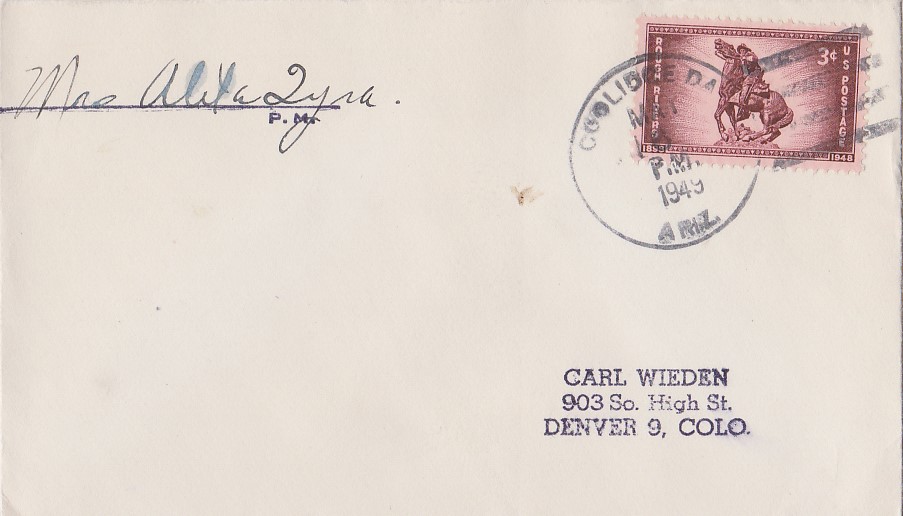 Mrs
P.M.
ROUGH RIDERS
3¢
U S POSTAGE
1898
1948
COOLIDGE DA
P.M.
1949
ARIZ.
CARL WIEDEN
903 So. High St.
DENVER 9, COLO.